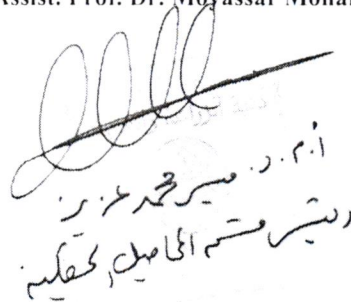 Assist. Prof. Dr. Moyassar Moha
أ.م.د. ميسر محمد عزيز
رئيس قسم المحاصيل الحقلية